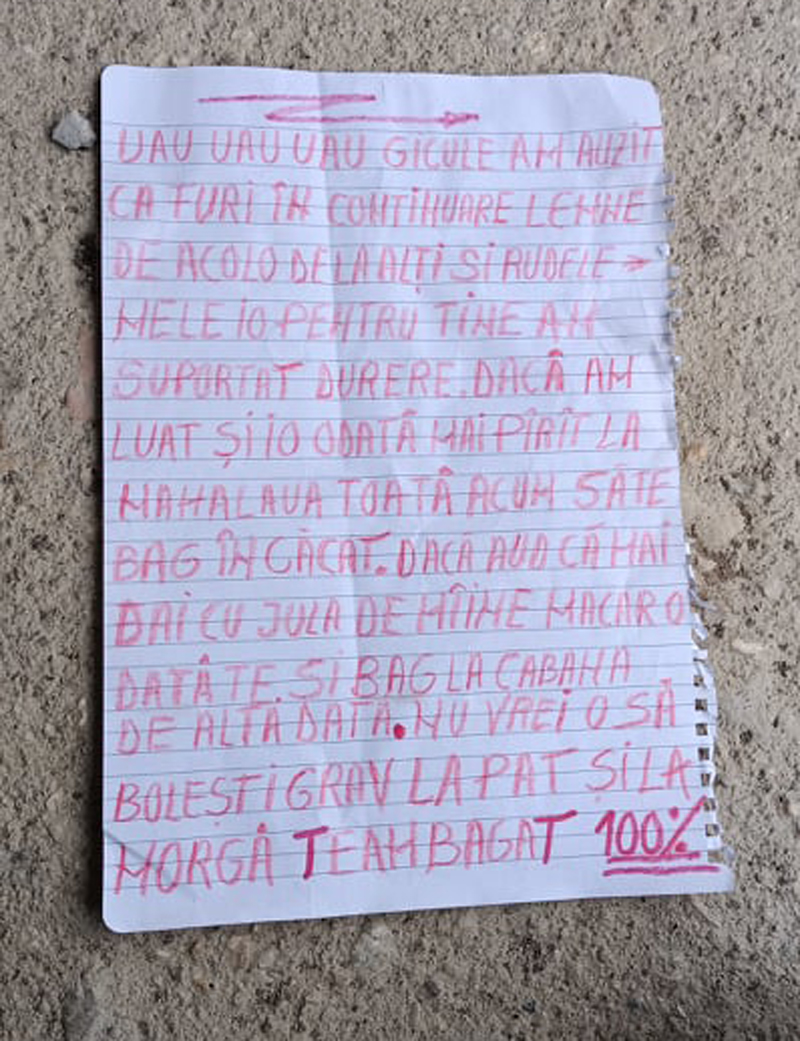 UAU UAU UAU GICULE AM AUZIT
CA FURI ÎN CONTINUARE LEMNE
DE ACOLO DE LA ALȚI SI RUDELE
MELE IO PENTRU TINE AM
SUPORTAT DURERE. DACÂ AM
LUAT ȘI IO ODATÂ MAI PÎRÎT LA
MAHALAUA TOATÂ ACUM SĂTE
BAG ÎN CĂCAT. DACĂ AUD CĂ MAI
DAI CU JULA DE MÎINE MACAR O
DATÂ TE. SI BAG LA CABANA
DE ALTĂ DATĂ. NU VREI O SĂ
BOLEȘTI GRAV LA PAT ȘI LA
MORGÂ TEAM BAGAT 100%